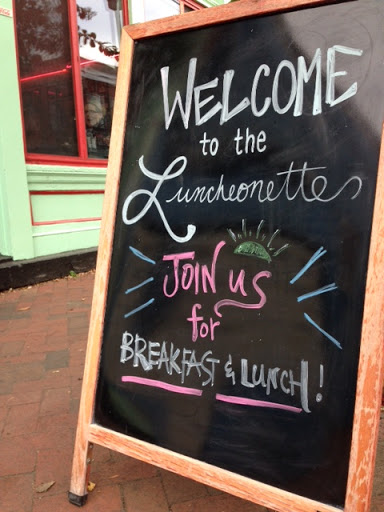 WELCOME
to the
Luncheonette
JOIN US
for
BREAKFAST & LUNCH!